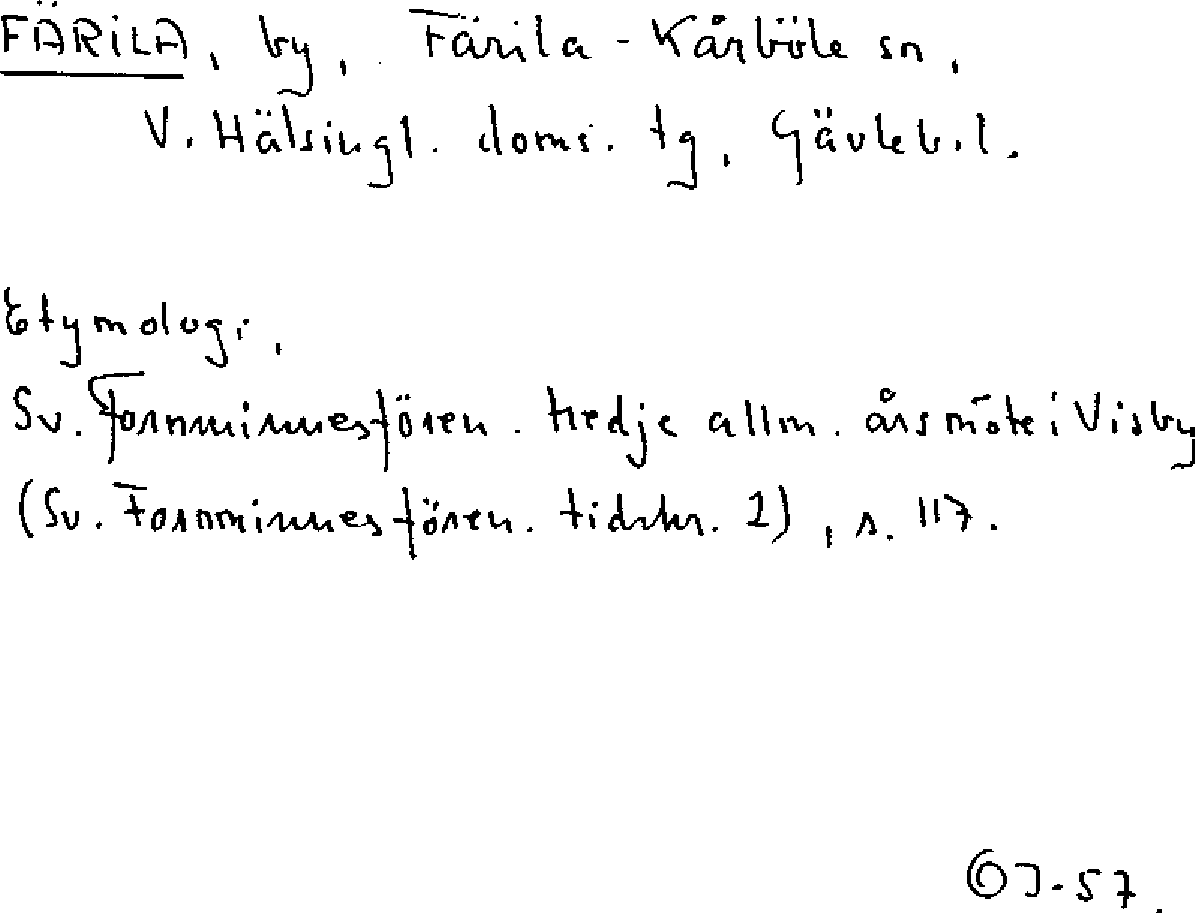 FÄRILA, by, Färila - Kårböle sn,
V. Hälsingl. doms. tg, Gävleb. l.
Etymologi,
Sv. Fornminnesfören. tredje allm. årsmöte i Visby
(Sv. Fornminnesfören. tidskr. 2), s. 117.
J-57.